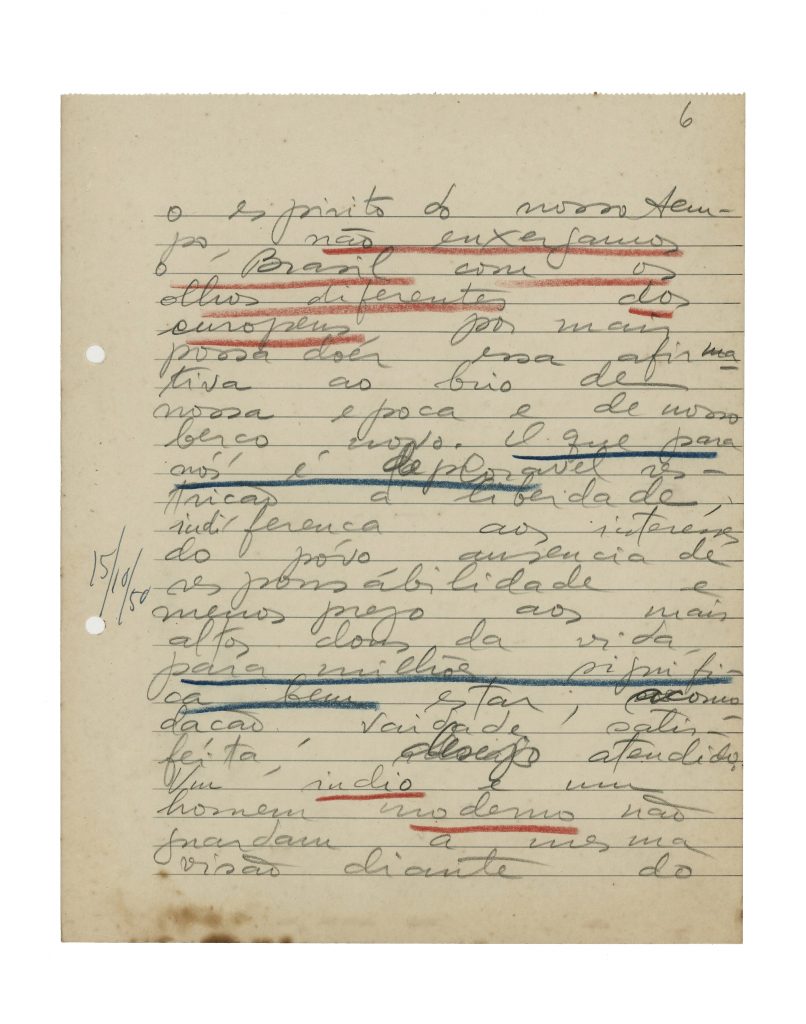 6
o espirito do nosso tem-
po, não enxergamos
o Brasil com os
olhos diferentes dos
europeus por mais
possa doer essa afirma
tiva ao brio de
nossa epoca e de nosso
berco novo. O que para
nós é deploravel res-
tricão à liberdade,
indiferenca aos interésses
do povo ausencia de
responsábilidade e
menos prezo aos mais
altos dons da vida,
para milhões, signifi-
ca bem estar, acomo
dacao vaidade satis-
feita, desejo atendido.
Um indio e um
homem moderno não
guardam a mesma
visão diante do
15/10/50